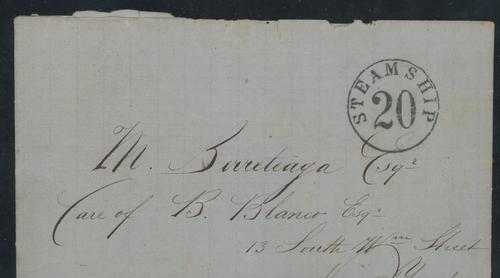 STEAMSHIP
20
M. Barreteaga Esqr
Care of B. Blanco Esqr
13 South Wm Street